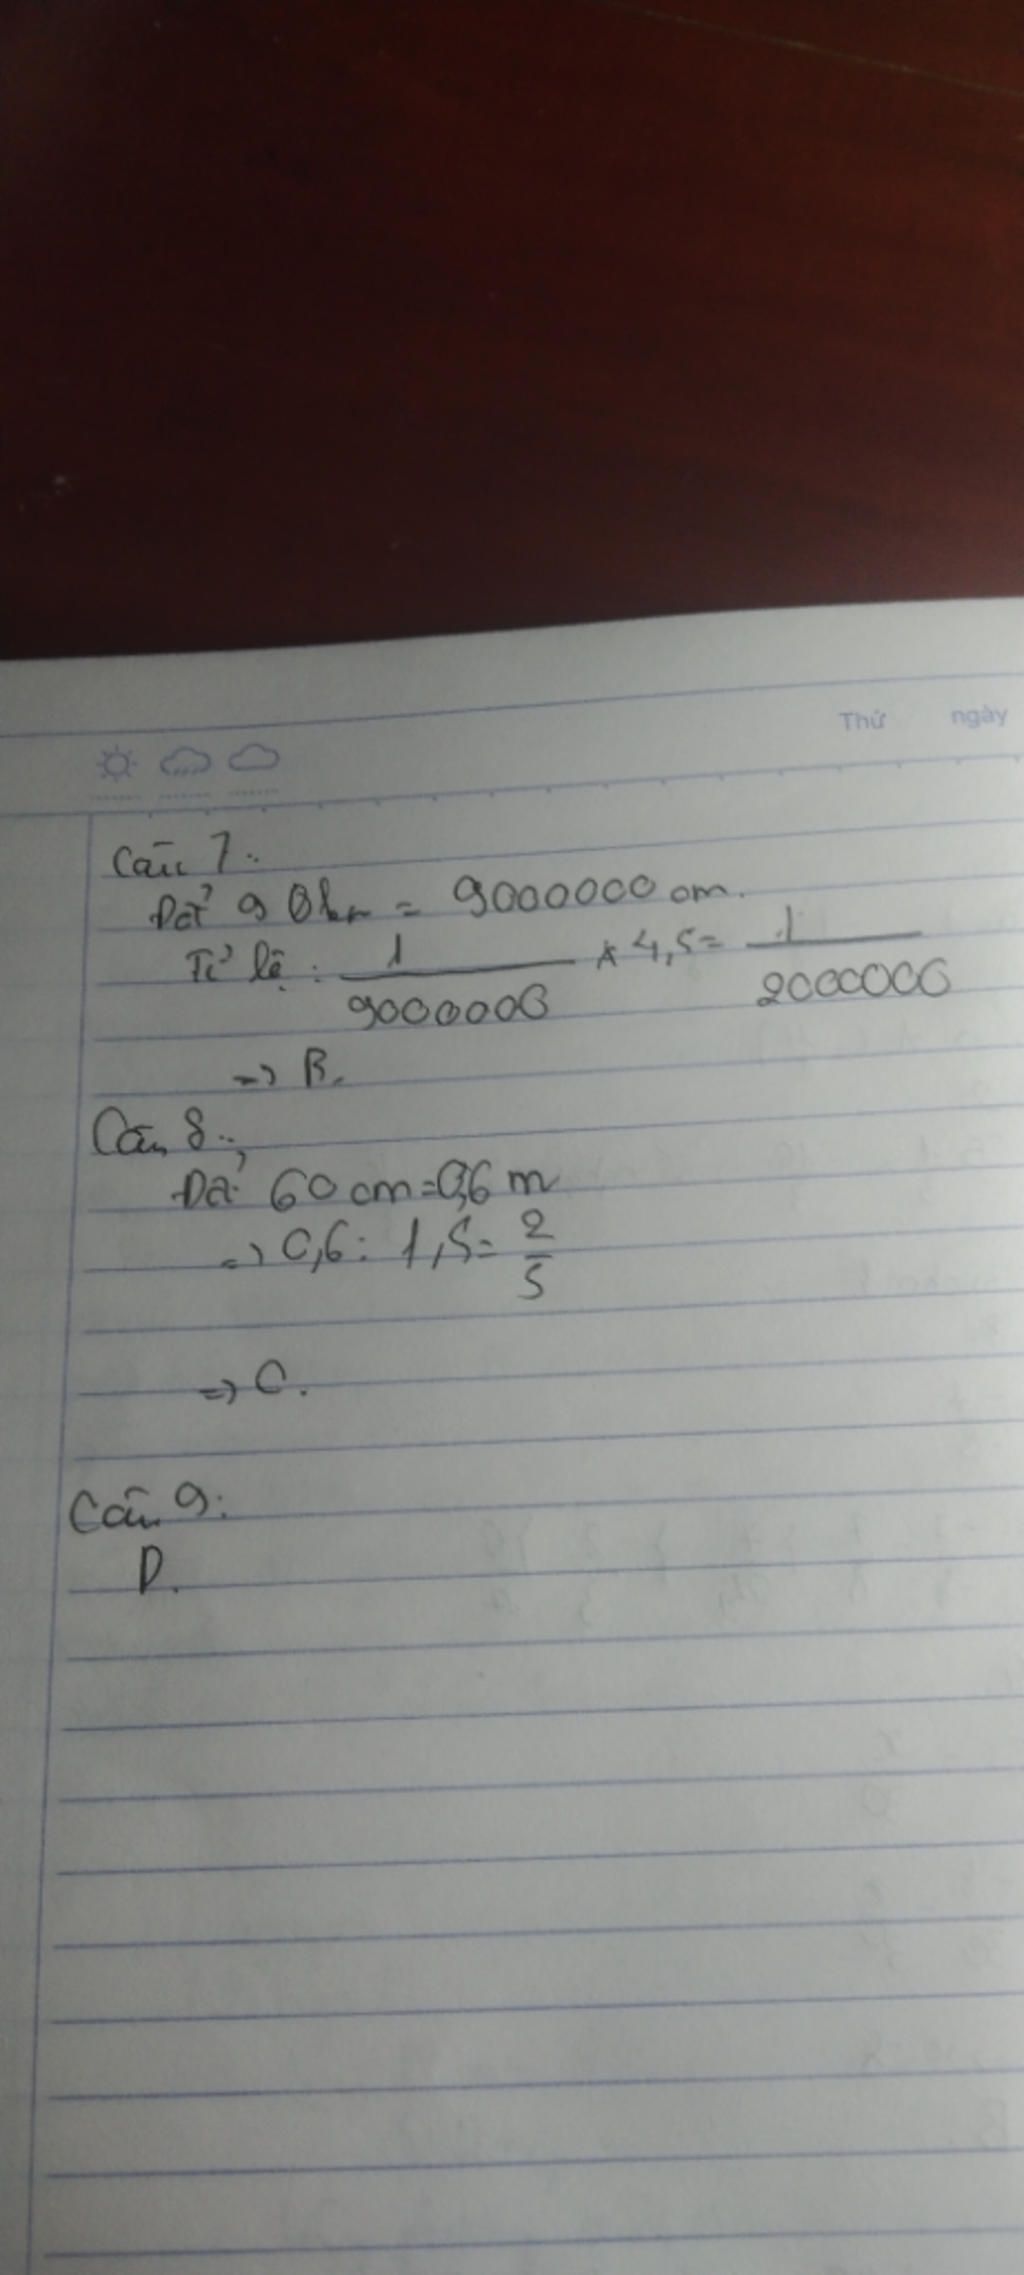 Thứ ngày
Câu 7:
Đổi 90km = 9000000 cm.
Tỉ lệ: 1/9000000 x 4,5 = 1/2000000
=> B.
Câu 8:
Đổi 60 cm = 0,6 m
=> 0,6 : 1,5 = 2/5
=> C.
Câu 9:
D.